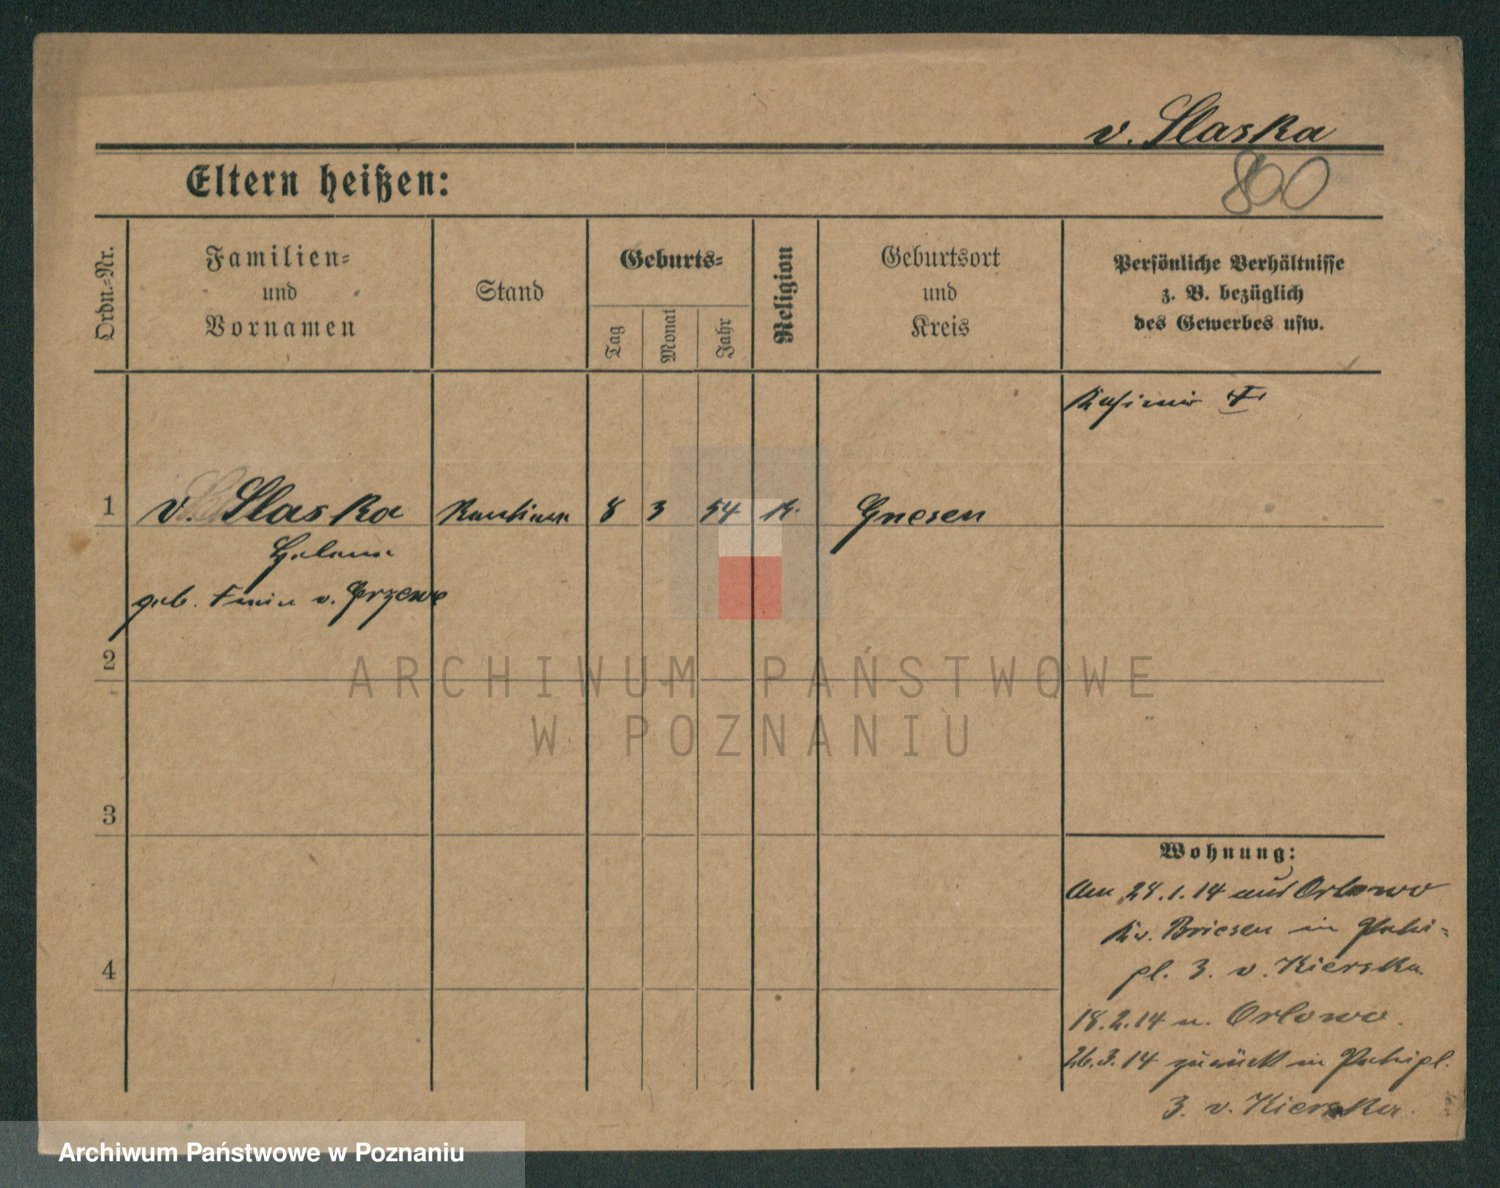 v. Slaska
800
Eltern heißen:
Ordn.-Nr.
Familien-
und
Vornamen
Stand
Geburts-
Tag
Monat
Jahr
Religion
Geburtsort
und
Kreis
Persönliche Verhältnisse
z. B. bezüglich
des Gewerbes usw.
Kasimir
1
v. Slaska
8
3
54
K.
Gnesen
Helene
geb. v.
2
3
4
Wohnung:
Am 28.1.14 aus Orlowo
Kr. Briesen in
pl. 3. v. Kierska
18.2.14 n. Orlowo.
26.3.14 zurück in
3. v. Kierska.
ARCHIWUM PAŃSTWOWE
W POZNANIU
Archiwum Państwowe w Poznaniu